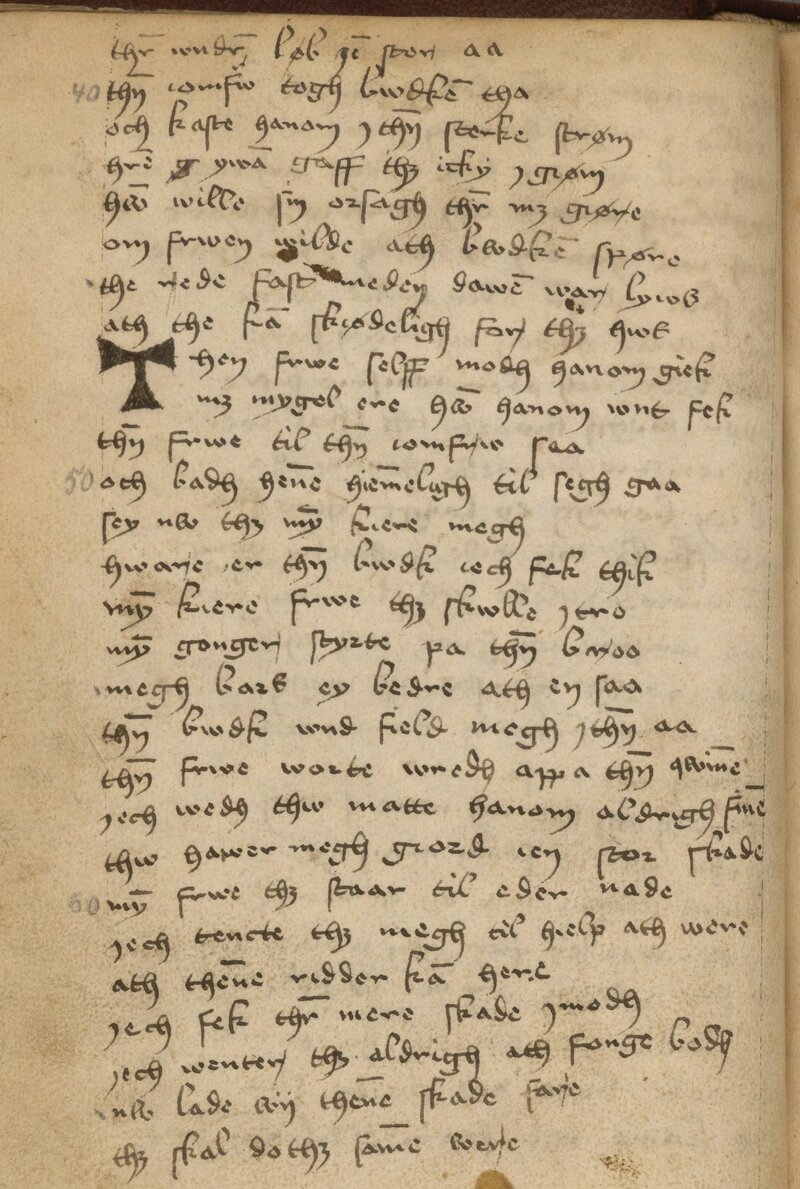 thr̄ wndr̄ løb ȷē stor aa
40 thn̄ iomfrw togh bwdkē tha
och kaste hanom ȷ thn̄ sterke strøm
hrē ywā gaff thꝫ icky ȷ grøm
hw̄ wille sin̄ orsagh thr̄ mꝫ gøre
om frwen wilde ath bwdkē spøre
the rede fast meden dawē war lyws
ath the kā skødeligh for thꝫ hws
Then frwe selff modh hanom giek
mꝫ mygel ere hw̄ hanom wnt fek
thn̄ frwe til thn̄ iomfrw saa
50 och badh hen̄e hiem̄eligh til segh gaa
sey nw thꝫ myn̄ kiere megh
hware er thn̄ bwdk iech fek thik
myn̄ kiere frwe thꝫ skwlle ȷ tro
myn̄ gonger styrte pa thn̄ broo
megh bars ey bedre ath en saa
thn̄ bwdk wnd field megh ȷ thn̄ aa
thn̄ frwe worte wredh app a thn̄ qwin̄e
ȷech wedh thw matte hanom aldrigh fin̄e
thw hawer megh giord ien stor skade
60 myn̄ frwe thꝫ staar til eder nade
ȷech tencte thꝫ megh til hielp ath were
ath then̄e ridder kā here
ȷech fek thr̄ mere skade ȷmodh
ȷech wenter thꝫ aldrigh ath fonge bodh
nw lade wij then̄e skade fare
thꝫ skal do thꝫ sam̄e were